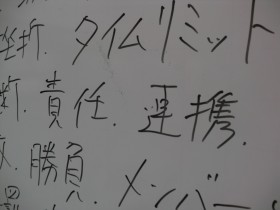 挫折. タイムリミット
断. 責任. 連携.
勝負. メンバー